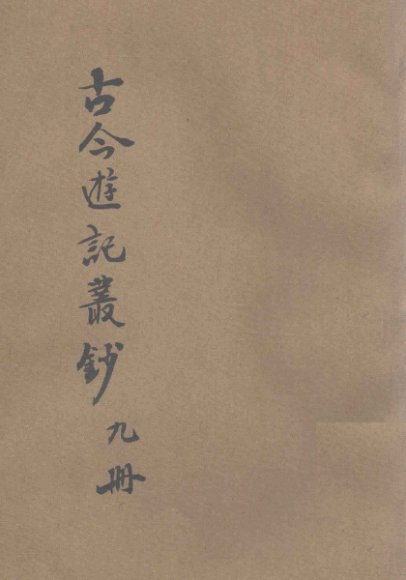 古今遊記叢鈔 九冊